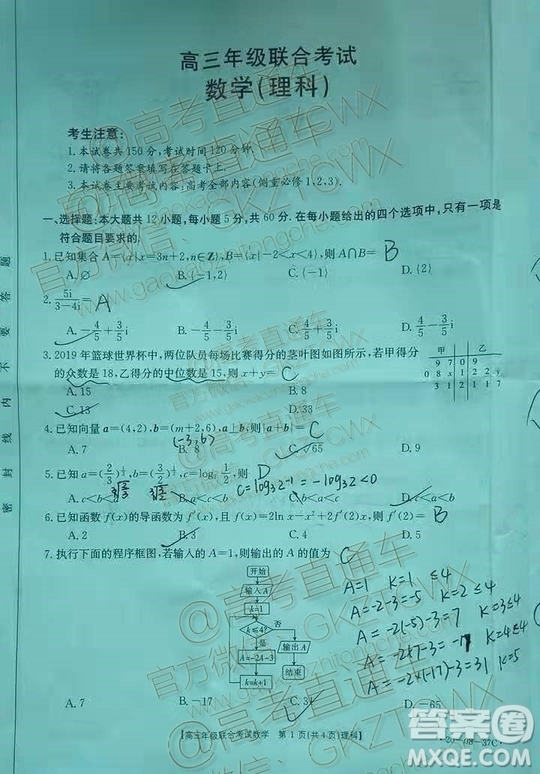 高三年级联合考试
数学(理科)
考生注意:
1.本试卷共150分,考试时间120分钟.
2.请将各题答案填写在答题卡上.
3.本试卷主要考试内容:高考全部内容(侧重必修1,2,3).
一、选择题:本大题共12小题,每小题5分,共60分.在每小题给出的四个选项中,只有一项是
符合题目要求的.
1.已知集合A={x|x=3n+2,n∈Z},B={x|-2<x<4},则A∩B= B
A.∅ B.{-1,2} C.{-1} D.{2}
2. 5i/(3-4i)= A
A.-4/5+3/5i B.-4/5-3/5i C.4/5+3/5i D.4/5-3/5i
3.2019年篮球世界杯中,两位队员每场比赛得分的茎叶图如图所示,若甲得分
的众数是18,乙得分的中位数是15,则x+y= C
甲 乙
9 7 0 9
0 8 x 1 2 y
3 1 2 1 1 7
A.15 B.14
C.13 D.10
4.已知向量a=(4,2),b=(m+2,6),a⊥b,则|a+b|= C
(-3,6)
A.7 B.8 C.√65 D.9
5.已知a=(2/3)^{1/3},b=(3/2)^{1/3},c=log₃ 1/2,则 D
A.c<b B. C. b<a<c D.c<a<b
c=log₃2⁻¹=-log₃2<0
6.已知函数f(x)的导函数为f′(x),且f(x)=2lnx-x²+2f′(2)x,则f′(2)= B
A.2 B.3 D.5
7.执行下面的程序框图,若输入的A=1,则输出的A的值为 C
开始
输入A
k=1
k≤4?
输出A
A=-2A-3
结束
k=k+1
A=1 k=1 ≤4
A=-2-3=-5 k=2≤4
A=-2(-5)-3=7 k=3≤4
A=-2×7-3=-17 k=4≤4
A=-2×(-17)-3=31 k=5
A.7 B.-17 C.31 D.-65
【高三年级联合考试数学 第1页(共4页)理科】
·20-08-37C·
密封线内不要答题
高考直通车
官方微信
GKZTCWX
答案圈
MXQE.COM